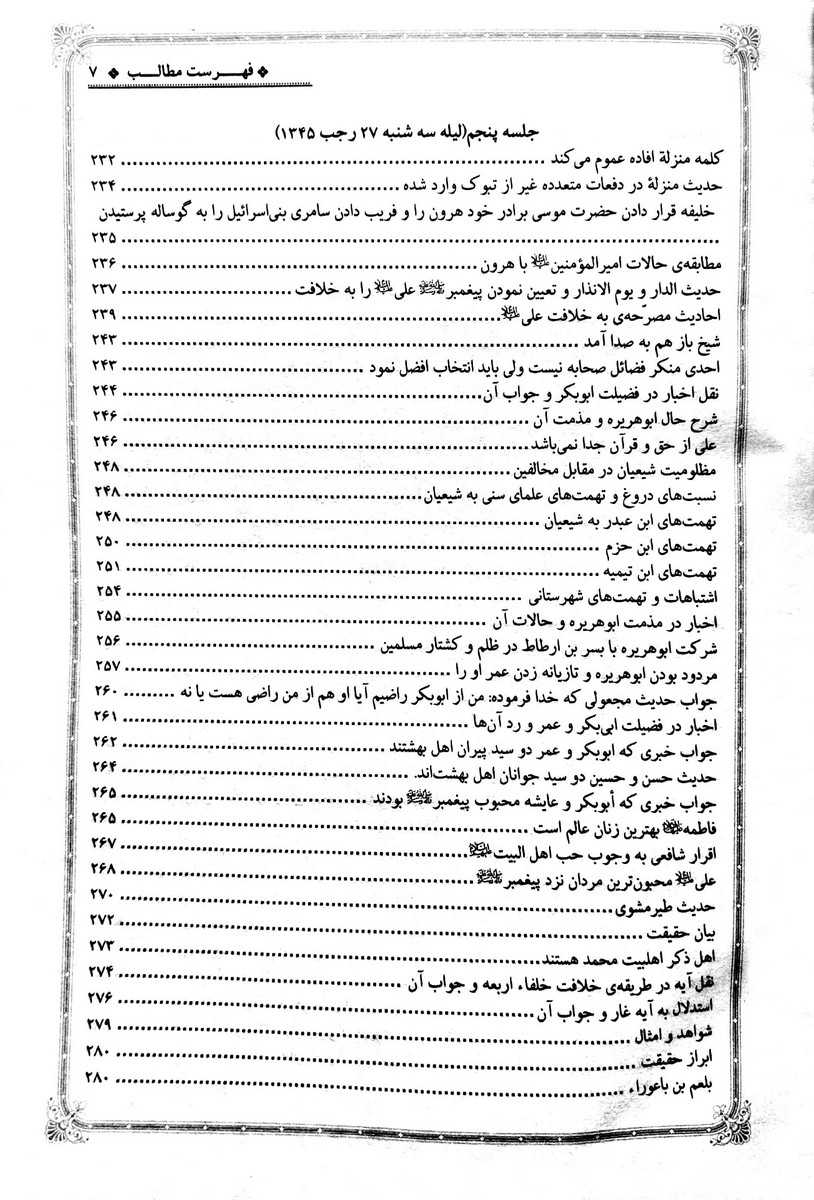 ❖ فهـــرست مطالــب ❖ ۷
جلسه پنجم(لیله سه شنبه ۲۷ رجب ۱۳۴۵)
کلمه منزلة افاده عموم می‌کند ........ ۲۳۲
حدیث منزلهٔ در دفعات متعدده غیر از تبوک وارد شده ........ ۲۳۴
خلیفه قرار دادن حضرت موسی برادر خود هرون را و فریب دادن سامری بنی‌اسرائیل را به گوساله پرستیدن
........ ۲۳۵
مطابقه‌ی حالات امیرالمؤمنین علیه‌السلام با هرون ........ ۲۳۶
حدیث الدار و یوم الانذار و تعیین نمودن پیغمبر ﷺ علی علیه‌السلام را به خلافت ........ ۲۳۷
احادیث مصرّحه‌ی به خلافت علی علیه‌السلام ........ ۲۳۹
شیخ باز هم به صدا آمد ........ ۲۴۳
احدی منکر فضائل صحابه نیست ولی باید انتخاب افضل نمود ........ ۲۴۳
نقل اخبار در فضیلت ابوبکر و جواب آن ........ ۲۴۴
شرح حال ابوهریره و مذمت آن ........ ۲۴۶
علی از حق و قرآن جدا نمی‌باشد ........ ۲۴۶
مظلومیت شیعیان در مقابل مخالفین ........ ۲۴۸
نسبت‌های دروغ و تهمت‌های علمای سنی به شیعیان ........ ۲۴۸
تهمت‌های ابن عبدر به شیعیان ........ ۲۴۸
تهمت‌های ابن حزم ........ ۲۵۰
تهمت‌های ابن تیمیه ........ ۲۵۱
اشتباهات و تهمت‌های شهرستانی ........ ۲۵۴
اخبار در مذمت ابوهریره و حالات آن ........ ۲۵۵
شرکت ابوهریره با بسر بن ارطاط در ظلم و کشتار مسلمین ........ ۲۵۶
مردود بودن ابوهریره و تازیانه زدن عمر او را ........ ۲۵۷
جواب حدیث مجعولی که خدا فرموده: من از ابوبکر راضیم آیا او هم از من راضی هست یا نه ........ ۲۶۰
اخبار در فضیلت ابی‌بکر و عمر و رد آن‌ها ........ ۲۶۱
جواب خبری که ابوبکر و عمر دو سید پیران اهل بهشتند ........ ۲۶۲
حدیث حسن و حسین دو سید جوانان اهل بهشت‌اند. ........ ۲۶۴
جواب خبری که أبوبکر و عایشه محبوب پیغمبر ﷺ بودند ........ ۲۶۵
فاطمه علیهاالسلام بهترین زنان عالم است ........ ۲۶۵
اقرار شافعی به وجوب حب اهل البیت علیهم‌السلام ........ ۲۶۷
علی علیه‌السلام محبون‌ترین مردان نزد پیغمبر ﷺ ........ ۲۶۸
حدیث طیرمشوی ........ ۲۷۰
بیان حقیقت ........ ۲۷۲
اهل ذکر اهلبیت محمد هستند ........ ۲۷۳
نقل آیه در طریقه‌ی خلافت خلفاء اربعه و جواب آن ........ ۲۷۴
استدلال به آیه غار و جواب آن ........ ۲۷۶
شواهد و امثال ........ ۲۷۹
ابراز حقیقت ........ ۲۸۰
بلعم بن باعوراء ........ ۲۸۰